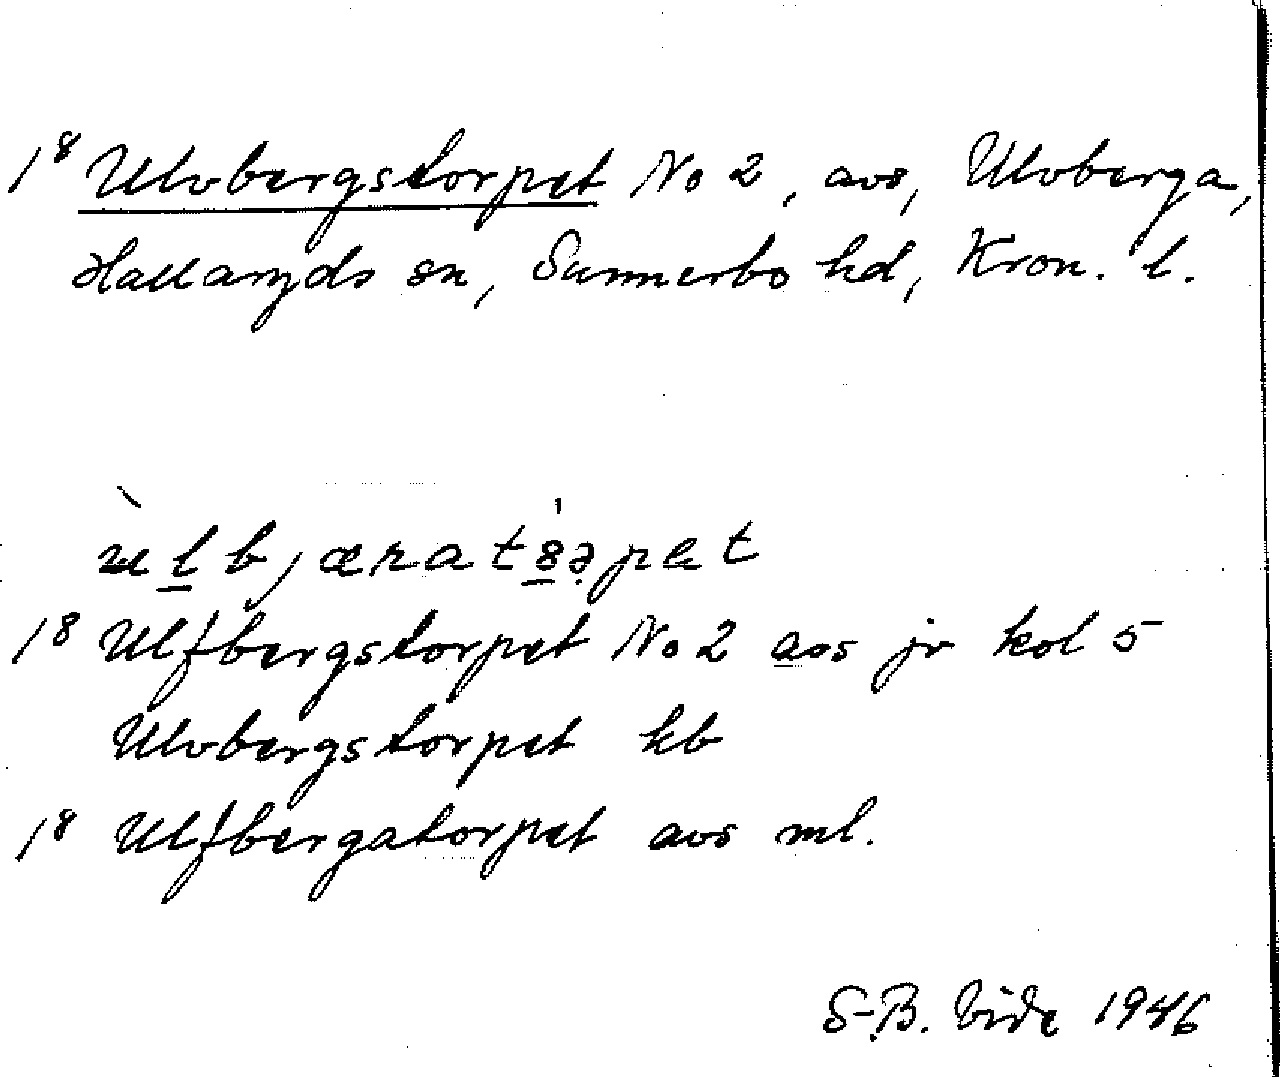 1⁸ Ulvbergstorpet No 2, avs, Ulvberga,
Hallaryds sn, Sunnerbo hd, Kron. l.
ùlbjæratꞛ́əpet
1⁸ Ulfbergstorpet No 2 avs jr kol 5
Ulvbergstorpet hb
1⁸ Ulfbergatorpet avs ml.
S-B. Vide 1946